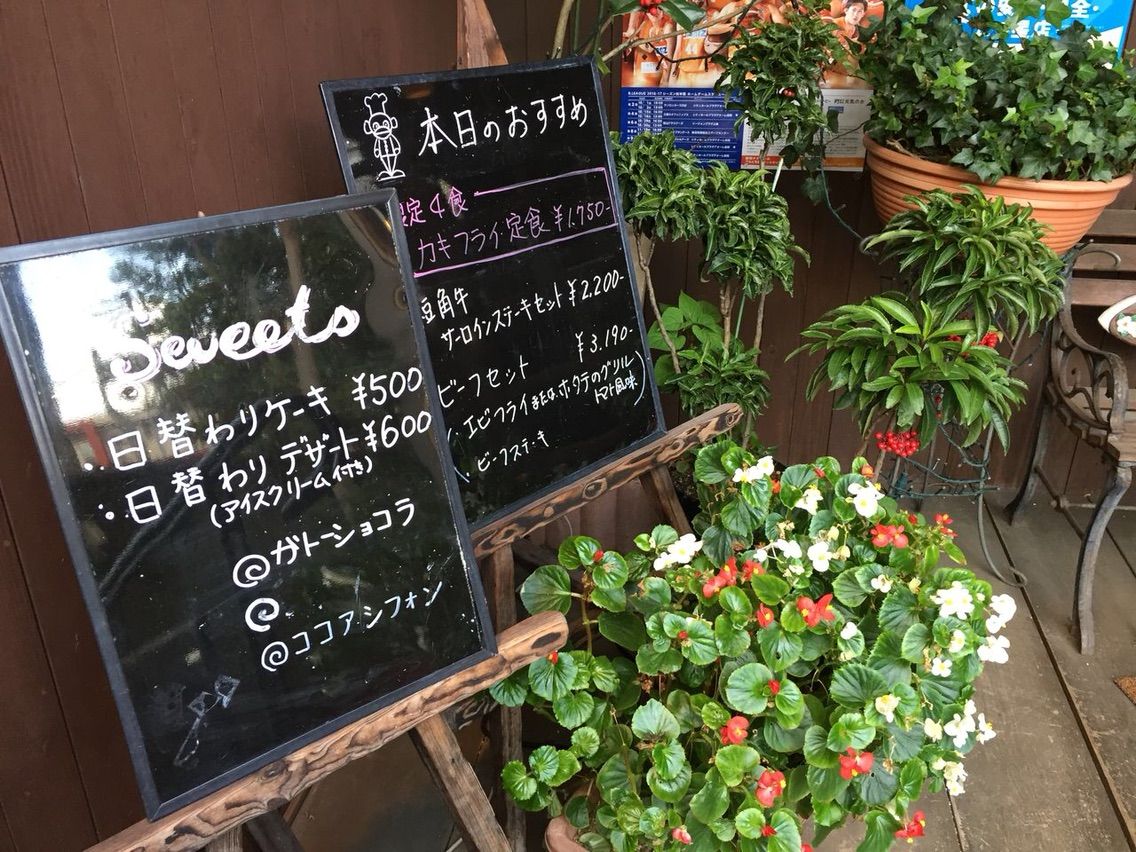 Sweets
日替わりケーキ ¥500
日替わり デザート ¥600
(アイスクリーム付き)
@ガトーショコラ
@
@ココアシフォン
本日のおすすめ
定4食
カキフライ定食 ¥1.750-
豆角牛
サーロインステーキセット ¥2.200-
ビーフセット ¥3.190-
エビフライまたはホタテのグリル
トマト風味)
・ビーフステキ